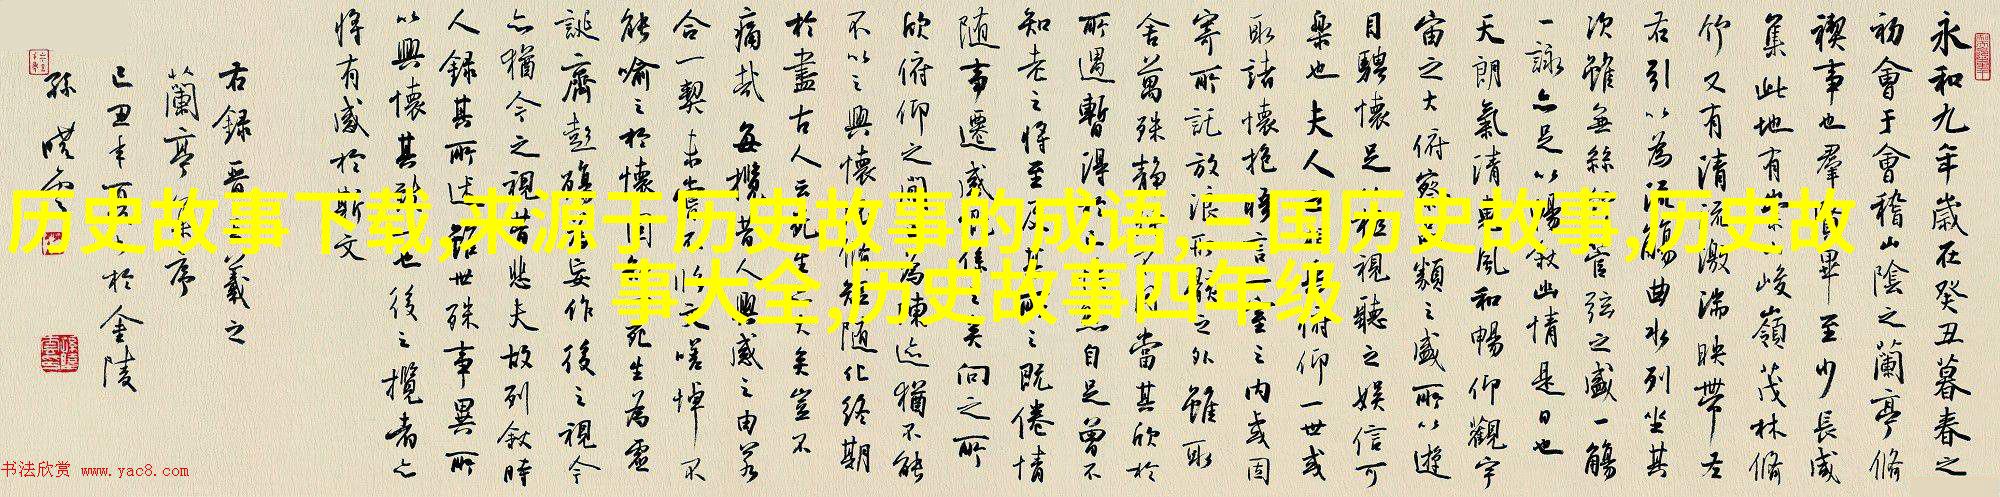 历史故事下载,来源于历史故事的成语,三国历史故事,历史故
事大全,历史故事四年级
永和九年歲在癸丑暮春之
初會于會稽山陰之蘭亭脩
禊事也羣賢畢至少長咸
集此地有崇峻嶺茂林脩
竹又有清流激湍映帶左
右引以為流觴曲水列坐其
次雖無絲管弦之盛一觴
一詠亦足以暢敘幽情是日也
天朗氣清惠風和暢仰觀宇
宙之大俯察類之盛所以遊
目騁懷足以極視聽之娛信可
樂也夫人之俯仰一世或
取諸懷抱晤言一室之內或因
寄所託放浪形骸之外雖取
舍萬殊靜同當其欣於
所遇暫得於自足曾不
知老之將至及其之既倦情
隨事遷感慨係之矣向之所
欣俯仰之間為陳迹猶不能
不以之興懷脩短隨化終期
於盡古人云死生大矣豈不
痛哉每攬昔人興感之由若
合一契未嘗不臨文嗟悼不
能喻之於懷固一死生為虛
誕齊彭殤為妄作後之視今
亦猶今之視昔悲夫故列敘時
人錄其所述雖世殊事異所
以興懷其致也後之攬者亦
將有感於斯文
右錄晉羲之
蘭亭序
已丑年夏於金陵
孫曉雲
书法欣赏 www.yac8.com